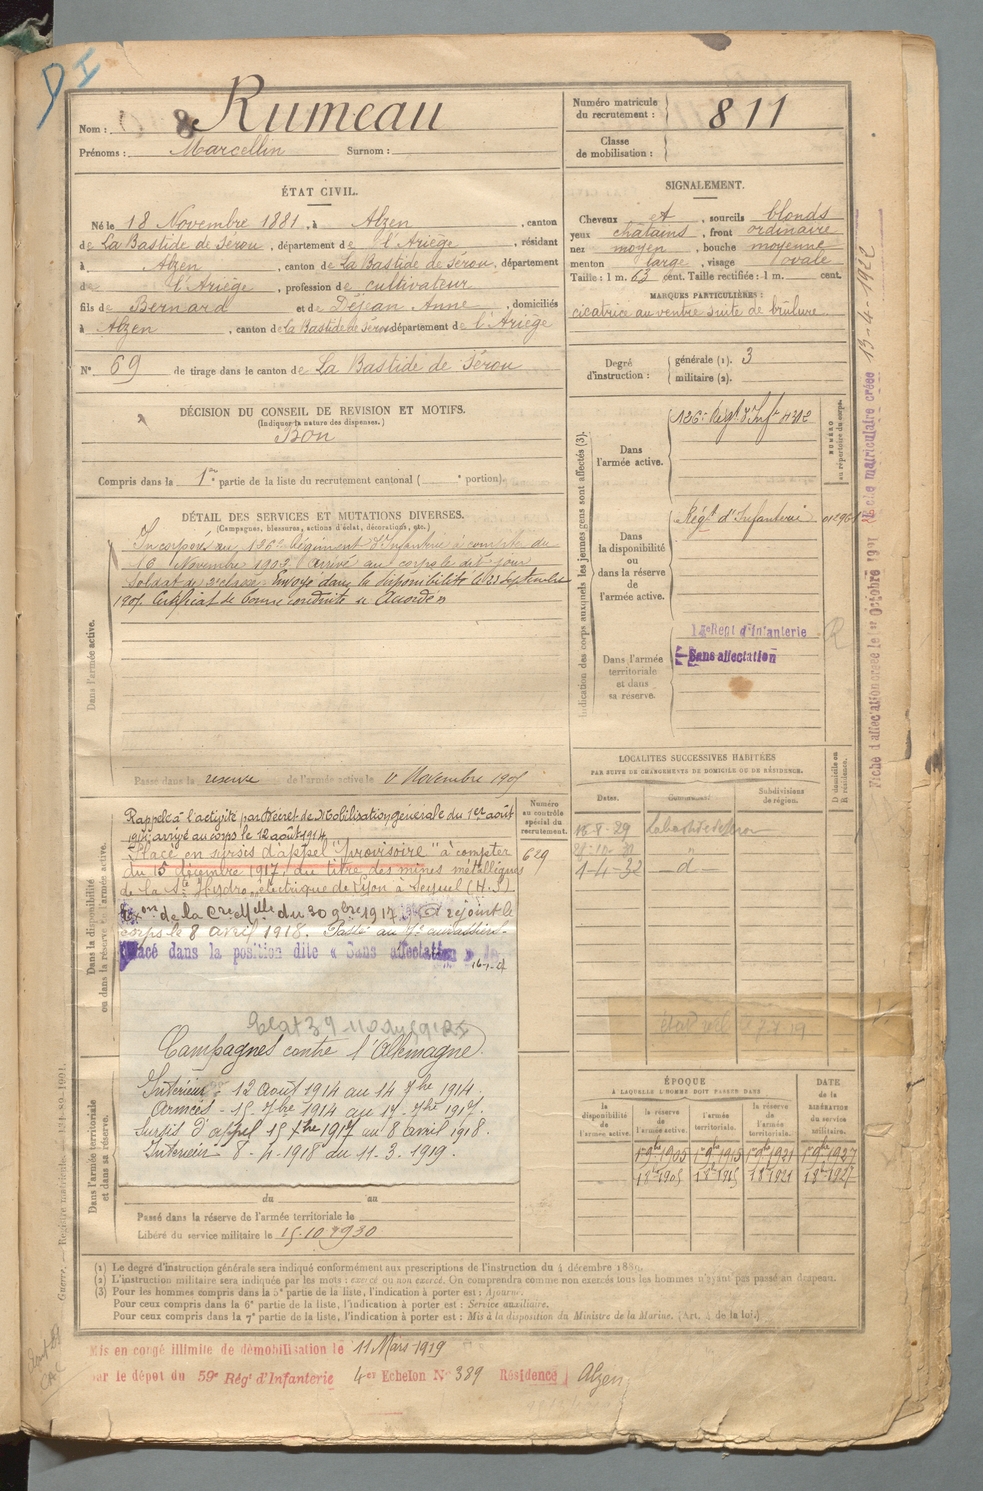 Nom : Rumeau
Prénoms : Marcellin Surnom :
Numéro matricule du recrutement : 811
Classe de mobilisation :
ÉTAT CIVIL.
Né le 18 Novembre 1881, à Alzen, canton
de La Bastide de Sérou, département de l'Ariège, résidant
à Alzen, canton de La Bastide de Sérou, département
de l'Ariège, profession de cultivateur
fils de Bernard et de Déjean Anne, domiciliés
à Alzen, canton de La Bastide de Sérou département de l'Ariège
N° 69 de tirage dans le canton de La Bastide de Sérou
SIGNALEMENT.
Cheveux et, sourcils blonds
yeux chatains, front ordinaire
nez moyen, bouche moyenne
menton large, visage ovale
Taille : 1 m. 63 cent. Taille rectifiée : 1 m. cent.
MARQUES PARTICULIÈRES :
cicatrice au ventre suite de brûlure
Degré d'instruction : générale (1). 3
militaire (2).
DÉCISION DU CONSEIL DE REVISION ET MOTIFS.
(Indiquer la nature des dispenses.)
Bon
Compris dans la 1re partie de la liste du recrutement cantonal ( portion).
DÉTAIL DES SERVICES ET MUTATIONS DIVERSES.
(Campagnes, blessures, actions d'éclat, décorations, etc.)
Dans l'armée active.
Incorporé au 126e Régiment d'Infanterie à compter du
16 Novembre 1902 arrivé au corps le dit jour
Soldat de 2e classe. Envoyé dans la disponibilité le 23 Septembre
1905 Certificat de bonne conduite "Accordé"
Passé dans la réserve de l'armée active le 1er Novembre 1905
Indication des corps auxquels les jeunes gens sont affectés (3).
NUMÉRO au répertoire du corps.
Dans l'armée active.
126e Régt d'Inf 4312
Dans la disponibilité ou dans la réserve de l'armée active.
Régt d'Infanterie
Dans l'armée territoriale et dans sa réserve.
Régt d'Infanterie
Sans affectation
Dans la disponibilité ou dans la réserve de l'armée active.
Numéro au contrôle spécial du recrutement.
629
Rappelé à l'activité par Décret de Mobilisation générale du 1er août
1914; arrivé au corps le 12 août 1914
Placé en sursis d'appel "provisoire" à compter
du 15 décembre 1917, au titre des mines métalliques
de la Sté Hydro électrique de Lyon à
de la Cre Melle du 30 9bre 1917 rejoint le
corps le 8 avril 1918. Passé au
Placé dans la position dite « Sans affectation »
Campagnes contre l'Allemagne
Intérieur : 12 Août 1914 au 14 7bre 1914.
Armées - 15 7bre 1914 au 1917.
Sursis d'appel 15 Xbre 1917 au 8 avril 1918.
Intérieur 8-4-1918 au 11.3.1919.
Dans l'armée territoriale et dans sa réserve.
du au
Passé dans la réserve de l'armée territoriale le
Libéré du service militaire le 15.10 1930
LOCALITÉS SUCCESSIVES HABITÉES
PAR SUITE DE CHANGEMENTS DE DOMICILE OU DE RÉSIDENCE.
Dates. Communes. Subdivisions de région. D domicile ou R résidence.
16-8-29 Labastide de Sérou
1-4-32 — d —
ÉPOQUE
À LAQUELLE L'HOMME DOIT PASSER DANS
DATE de la LIBÉRATION du service militaire.
la disponibilité de l'armée active. la réserve de l'armée active. l'armée territoriale. la réserve de l'armée territoriale.
1er 9bre 1905 1er 9bre 1915 1er 9bre 1921 1er 9bre 1927
(1) Le degré d'instruction générale sera indiqué conformément aux prescriptions de l'instruction du 4 décembre 1889.
(2) L'instruction militaire sera indiquée par les mots : exercé ou non exercé. On comprendra comme non exercés tous les hommes n'ayant pas passé au drapeau.
(3) Pour les hommes compris dans la 5e partie de la liste, l'indication à porter est : Ajourné.
Pour ceux compris dans la 6e partie de la liste, l'indication à porter est : Service auxiliaire.
Pour ceux compris dans la 7e partie de la liste, l'indication à porter est : Mis à la disposition du Ministre de la Marine. (Art. 4 de la loi.)
Mis en congé illimité de démobilisation le 11 Mars 1919
par le dépôt du 59e Régt d'Infanterie 4e Echelon N° 389 Résidence Alzen
Fiche d'affectation créée le 1er Octobre 1921 Fiche matriculaire créée 13-4-1922